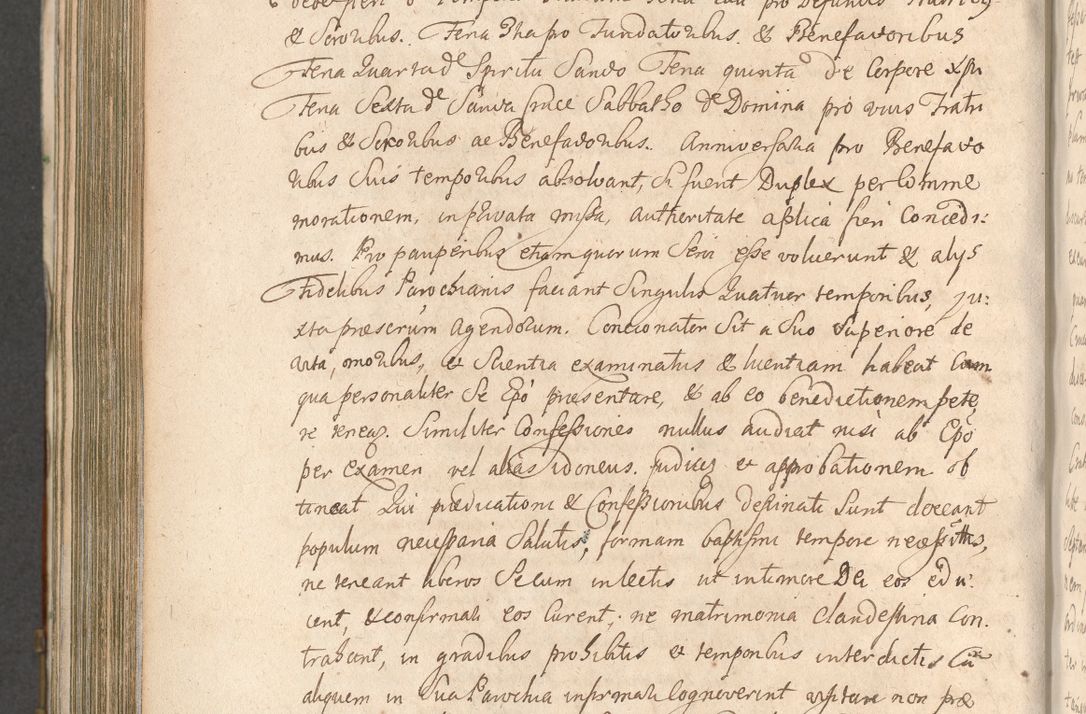 & Sororibus. Feria 3tia pro Fundatoribus & Benefactoribus
Feria Quarta de Spiritu Sancto Feria quinta de Corpore xpi
Feria Sexta de Sancta Cruce Sabbatho de Domina pro vivis Fratri
bus & Sororibus ac Benefactoribus. Anniversaria pro Benefacto
ribus suis temporibus absolvant, si fuerit Duplex per Comme
morationem, in privata missa, autheritate aplica fieri Concedi:
mus. Pro pauperibus etiam quorum Servi esse voluerunt & alys
Fidelibus Parochianis faciant Singulis Quatuor temporibus, ju:
xta praescrum agendorum. Concionator Sit a Suo Superiore de
vita, moribus, et Scientia examinatus & licentiam habeat Cum
qua personaliter Se Epo praesentare, & ab eo benedictionem pete
re teneat. Similiter Confessiones nullus audiat nisi ab Epo
per Examen vel alias idoneus judicetur et approbationem ob
tineat Qui praedicationi & Confessionibus destinati Sunt doceant
populum necessaria Salutis, formam baptismi tempore necessittis,
ne teneant liberos Secum in lectis ut in timore Dei eos edu:
cent, & confirmari eos Curent, ne matrimonia Clandestina Con
trahant, in gradibus prohibitis et temporibus interdictis Cu
aliquem in Sua Parochia infirmari Cognoverint visitare non prae